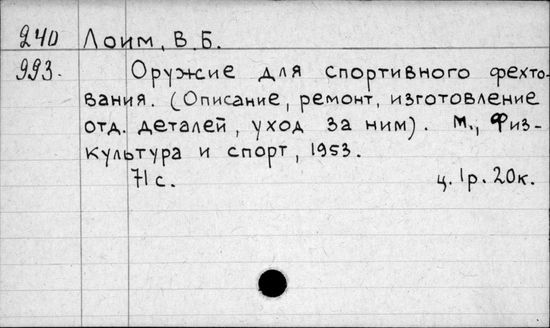 240 Лоим, В.Б.
993. Оружие для спортивного фехто-
вания. (Описание, ремонт, изготовление
отд. деталей, уход за ним). М., Физ-
культура и спорт, 1953.
71 с. ц. 1р. 20к.